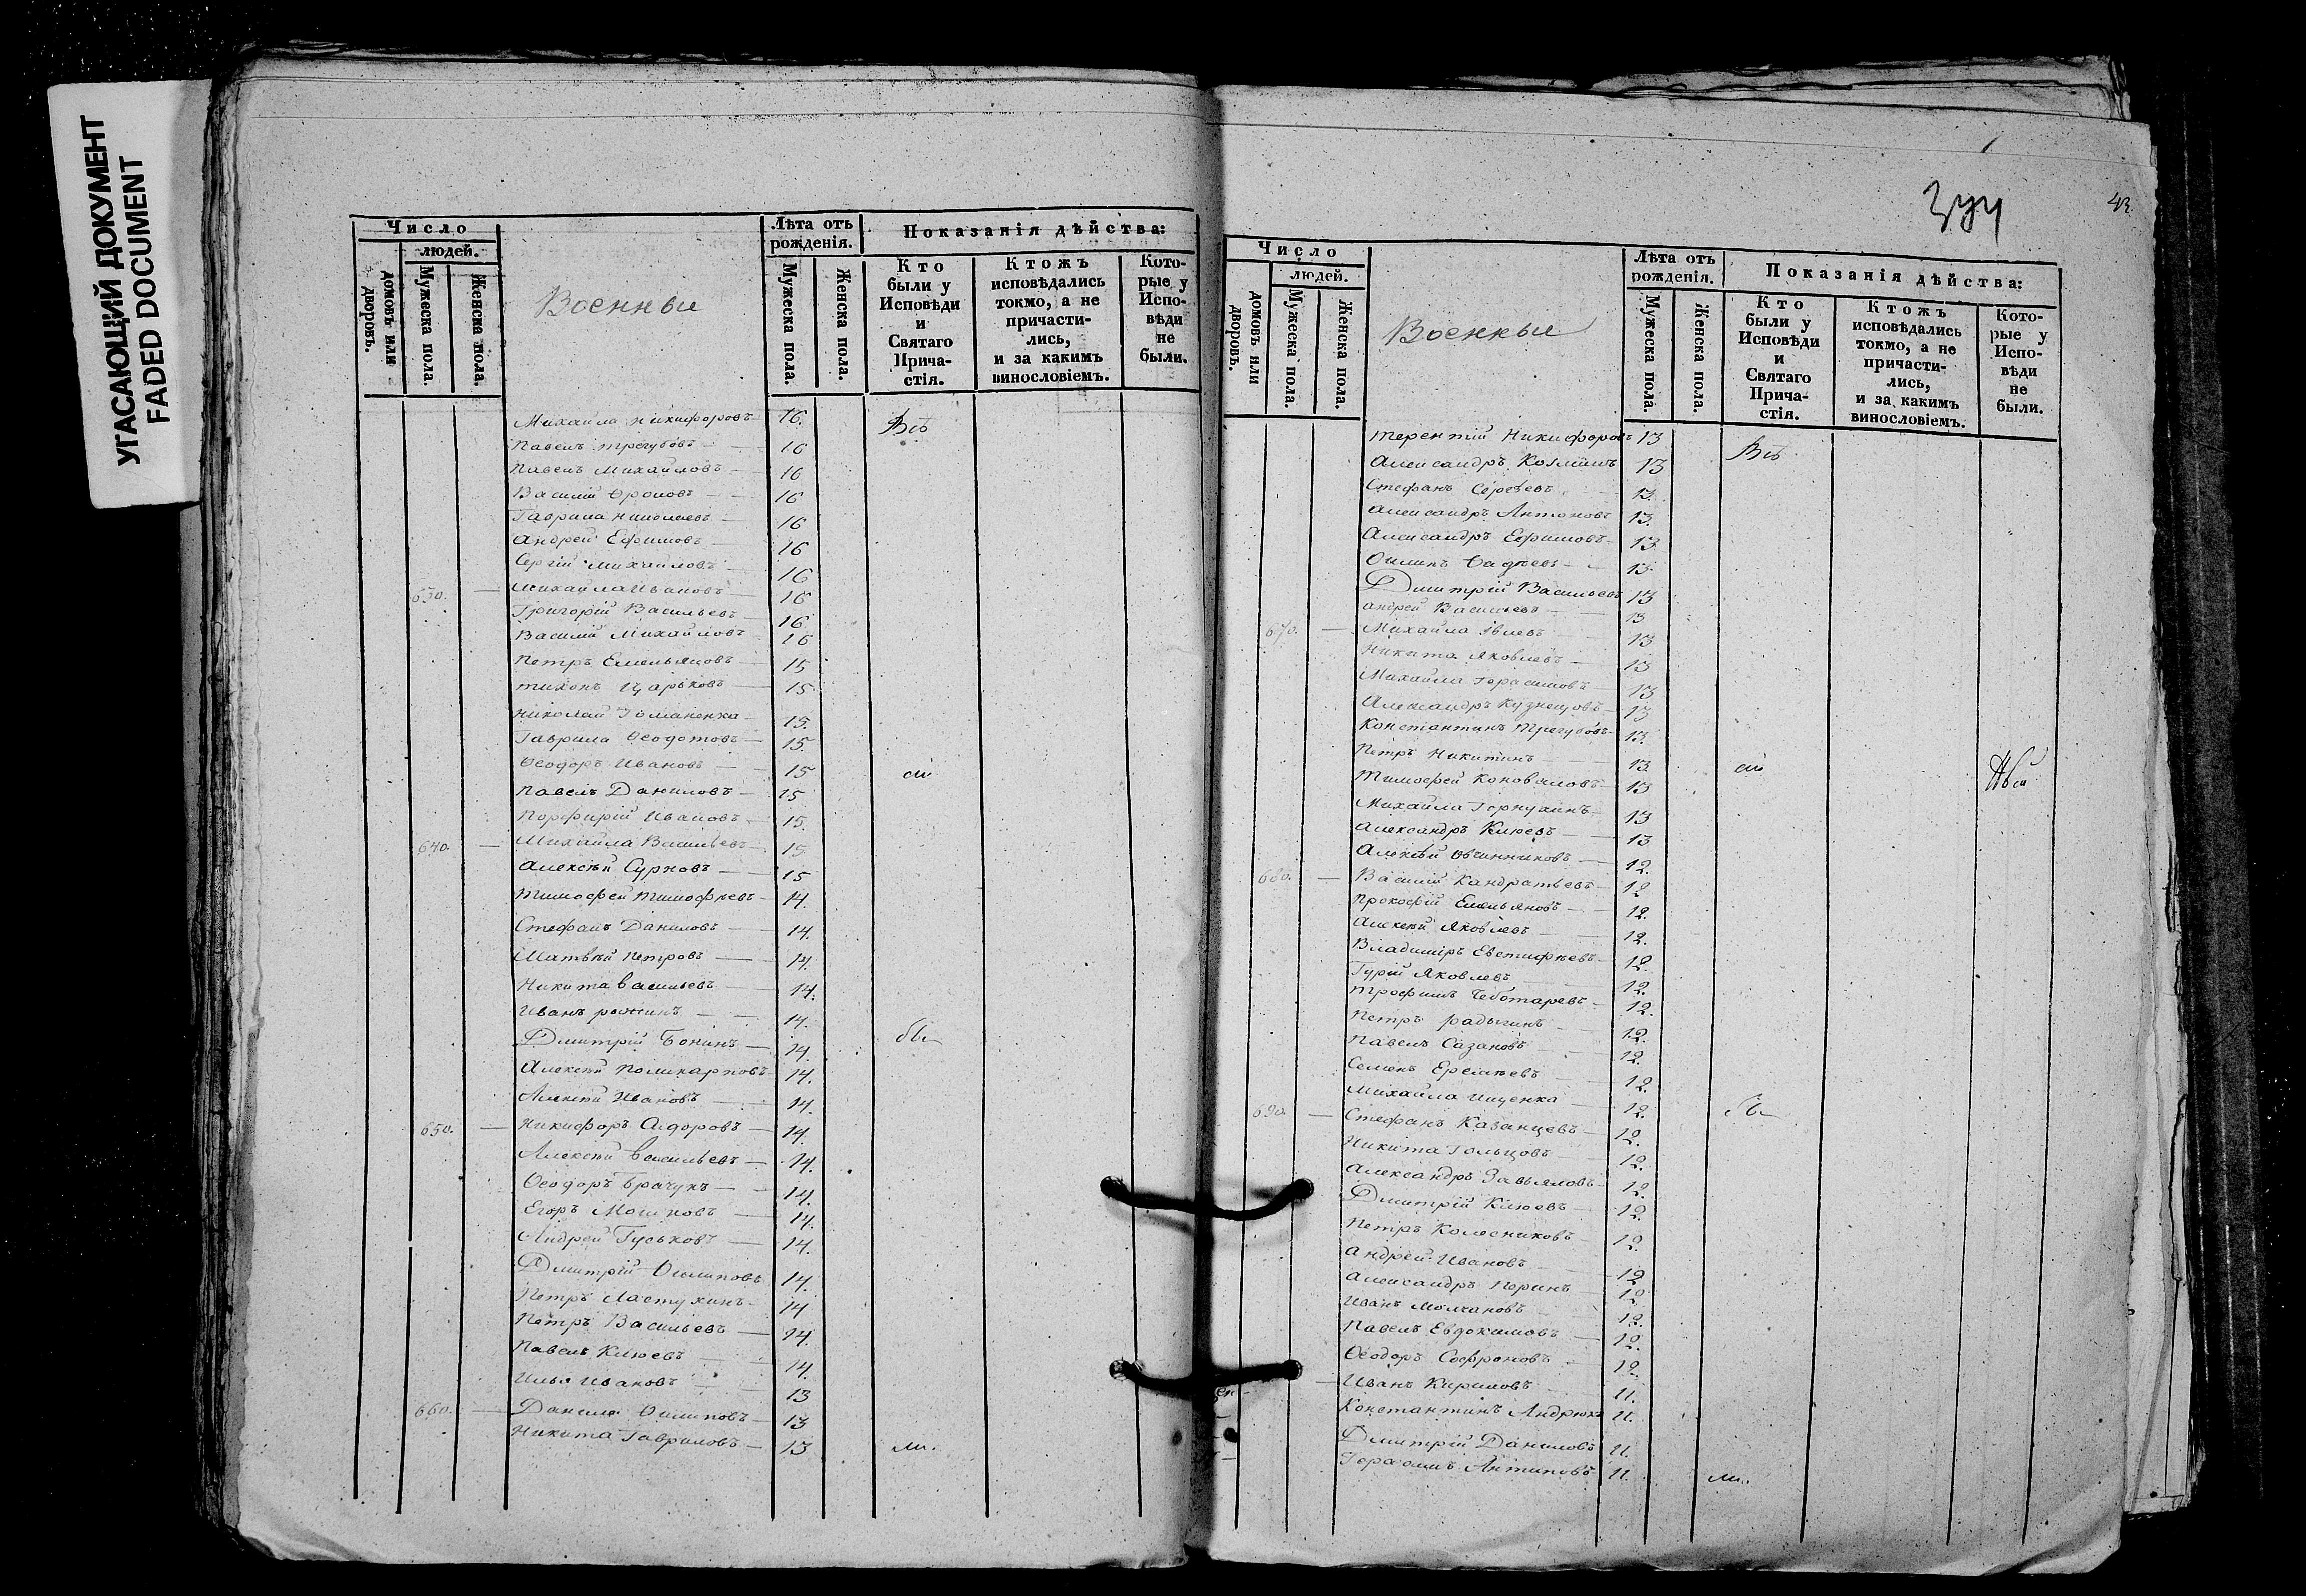 УГАСАЮЩИЙ ДОКУМЕНТ
FADED DOCUMENT
Число
людей.
домовъ или дворовъ.
Мужеска пола.
Женска пола.
Военныи
Лѣта отъ рожденія.
Мужеска пола.
Женска пола.
Показанія дѣйства:
Кто были у Исповѣди и Святаго Прича-стія.
Ктожъ исповѣдались токмо, а не причасти-лись, и за какимъ винословіемъ.
Кото-рые у Испо-вѣди не были.
Михаила Никифоровъ 16. Всѣ
Павелъ Трегубовъ 16
Павелъ Михайловъ 16
Василій Ѳроловъ 16
Гаврила Николаевъ 16
Андрей Ефимовъ 16
Сергій Михайловъ 16
630. Михайла Ивановъ 16
Григорій Васильевъ 16
Василій Михайловъ 16
Петръ Емельяновъ 15
Тихонъ Царьковъ 15
Николай Романенка 15.
Гаврила Ѳеодотовъ 15.
Ѳеодоръ Ивановъ 15 сіи
Павелъ Даниловъ 15
Порфирій Ивановъ 15.
640. Михайла Васильевъ 15
Алексѣй Сурковъ 15
Тимофей Тимофѣевъ 14.
Стефанъ Даниловъ 14.
Матвѣй Петровъ 14.
Никита Васильевъ 14.
Иванъ 14.
Дмитрій Бонинъ 14. бы
Алексѣй Поликарповъ 14.
Алексѣй Ивановъ 14.
650. Никифоръ Сидоровъ 14.
Алексѣй Васильевъ 14.
Ѳеодоръ Брачукъ 14.
Егоръ 14.
Андрей Гуськовъ 14.
Дмитрій Филиповъ 14.
Петръ Ластухинъ 14
Петръ Васильевъ 14.
Павелъ Клюевъ 14.
Илья Ивановъ 13
660. Данила Филиповъ 13
Никита Гавриловъ 13 ли.
43.
Число
людей.
домовъ или дворовъ.
Мужеска пола.
Женска пола.
Военныи
Лѣта отъ рожденія.
Мужеска пола.
Женска пола.
Показанія дѣйства:
Кто были у Исповѣди и Святаго Прича-стія.
Ктожъ исповѣдались токмо, а не причасти-лись, и за какимъ винословіемъ.
Кото-рые у Испо-вѣди не были.
Терентій Никифоровъ 13 Всѣ
Александръ Козминъ 13
Стефанъ Сергѣевъ 13.
Александръ Антоновъ 13.
Александръ Ефимовъ 13
13.
Дмитрій Васильевъ 13
Андрей Васильевъ 13
670. Михайла Івлевъ 13
Никита Яковлевъ 13
Михайла Герасимовъ 13
Александръ Кузнецовъ 13
Константинъ Трегубовъ 13.
Петръ Никитинъ 13. сіи
Тимофей Коноваловъ 13
Михайла Горпухинъ 13
Александръ Клюевъ 13
Алексѣй Овчинниковъ 12.
680. Василій Кандратьевъ 12
Прокофій Емельяновъ 12.
Алексѣй Яковлевъ 12.
Владиміръ Евстифѣевъ 12.
Гурій Яковлевъ 12.
Трофимъ Чеботаревъ 12.
Петръ Радыгинъ 12.
Павелъ Сазановъ 12.
Семенъ Еремѣевъ 12.
Михайла Ищенка 12. бы
690. Стефанъ Казанцевъ 12.
Никита Гольцовъ 12.
Александръ Завьяловъ 12.
Дмитрій Клюевъ 12.
Петръ Колесниковъ 12.
Андрей Ивановъ 12
Александръ Норинъ 12.
Иванъ Молчановъ 12.
Павелъ Евдокимовъ 12.
Ѳеодоръ Софроновъ 12.
Иванъ Кириловъ 11.
Константинъ 11.
Дмитрій Даниловъ 11.
Герасимъ Антиповъ 11. ли.